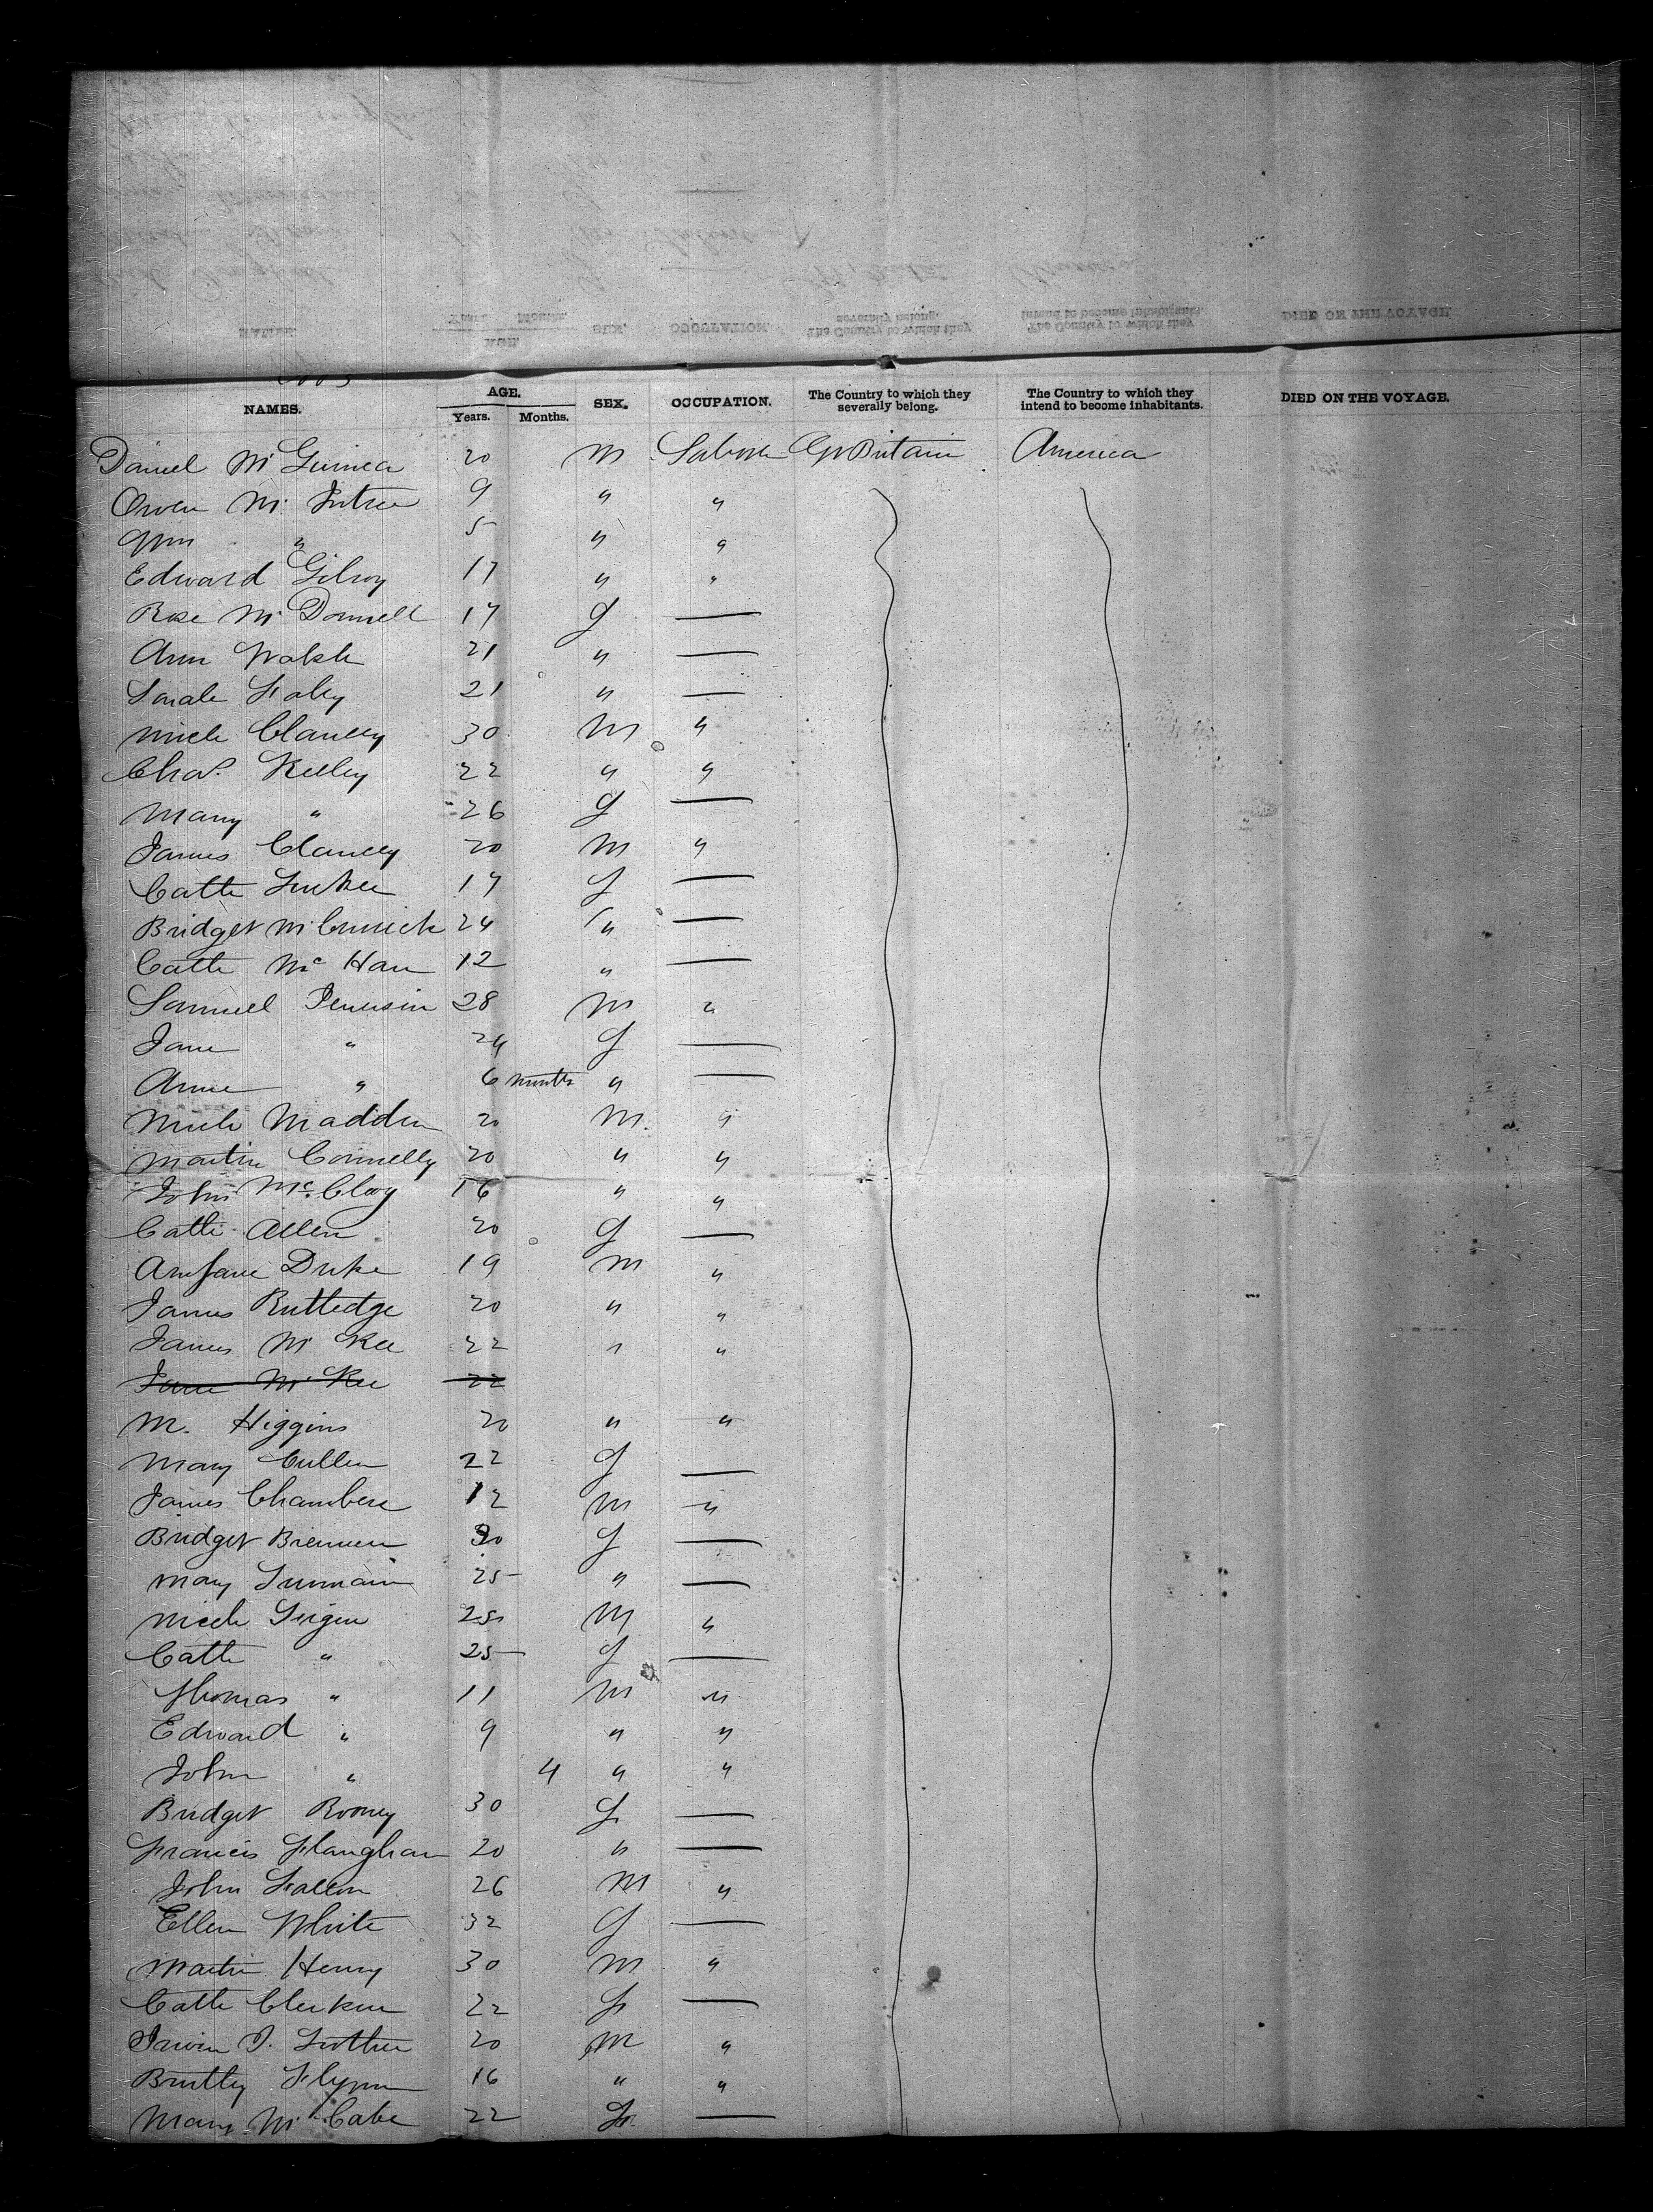 NAMES. AGE. Years. Months. SEX. OCCUPATION. The Country to which they severally belong. The Country to which they intend to become inhabitants. DIED ON THE VOYAGE.
Daniel Mc 20 M Laborer Gr Britain America
Owen Mc 9 " "
Wm " 5 " "
Edward Gilroy 17 " "
Rose Mc Donnell 17 F —
Ann Walsh 21 " —
Sarah 21 " —
Mich Clancey 30 M "
Chas. Kelley 22 " "
Mary " 26 F —
James Clancey 20 M "
Cath 17 F —
Bridget Mc 24 " —
Cath Mc 12 " —
Samuel 28 M "
Jane " 24 F —
Anne " 6 months " —
Mich Madden 20 M. "
Martin Connelly 20 " "
John Mc. Cloy 16 " "
Cath Allen 20 F —
Duke 19 M "
James Rutledge 20 " "
James Mc Kee 22 " "
Jane Mc Kee 22
M. Higgins 20 " "
Mary Cullen 22 F —
James Chambers 12 M "
Bridget Brennen 30 F —
Mary 25 " —
Mich 25 M "
Cath " 25 F —
Thomas " 11 M "
Edward " 9 " "
John " 4 " "
Bridget Rooney 30 F —
Francis 20 " —
John Fallon 26 M "
Ellen White 32 F —
Martin Henry 30 M "
Cath 22 F —
20 M "
Flynn 16 " "
Mary Mc Cabe 22 F. —